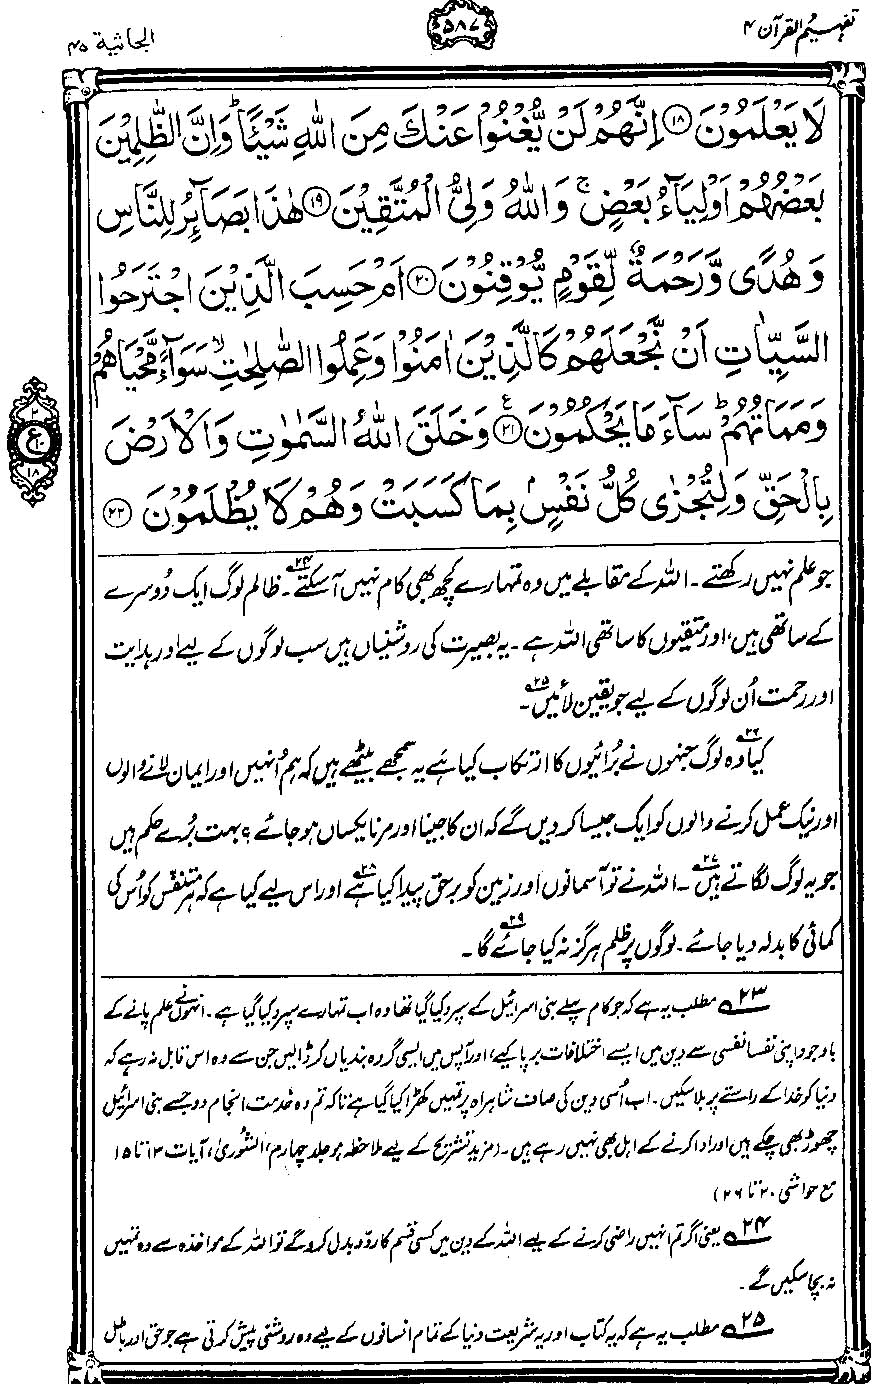 تفہیم القرآن ۴
۵۸۷
الجاثیۃ ۴۵
لَا يَعْلَمُوْنَ ﴿۱۸﴾ اِنَّهُمْ لَنْ يُّغْنُوْا عَنْكَ مِنَ اللّٰهِ شَيْـًٔا ؕ وَاِنَّ الظّٰلِمِيْنَ
بَعْضُهُمْ اَوْلِيَآءُ بَعْضٍ ۚ وَاللّٰهُ وَلِيُّ الْمُتَّقِيْنَ ﴿۱۹﴾ هٰذَا بَصَآئِرُ لِلنَّاسِ
وَهُدًى وَّرَحْمَةٌ لِّقَوْمٍ يُّوْقِنُوْنَ ﴿۲۰﴾ اَمْ حَسِبَ الَّذِيْنَ اجْتَرَحُوا
السَّيِّاٰتِ اَنْ نَّجْعَلَهُمْ كَالَّذِيْنَ اٰمَنُوْا وَعَمِلُوا الصّٰلِحٰتِ ۙ سَوَآءً مَّحْيَاهُمْ
وَمَمَاتُهُمْ ؕ سَآءَ مَا يَحْكُمُوْنَ ﴿۲۱﴾ ع وَخَلَقَ اللّٰهُ السَّمٰوٰتِ وَالْاَرْضَ
بِالْحَقِّ وَلِتُجْزٰى كُلُّ نَفْسٍۭ بِمَا كَسَبَتْ وَهُمْ لَا يُظْلَمُوْنَ ﴿۲۲﴾
۲
ع
۱۸
جو علم نہیں رکھتے۔ اللہ کے مقابلے میں وہ تمہارے کچھ بھی کام نہیں آ سکتے۲۴۔ ظالم لوگ ایک دُوسرے
کے ساتھی ہیں، اور متقیوں کا ساتھی اللہ ہے۔ یہ بصیرت کی روشنیاں ہیں سب لوگوں کے لیے اور ہدایت
اور رحمت اُن لوگوں کے لیے جو یقین لائیں۲۵۔
کیا۲۶ وہ لوگ جنہوں نے بُرائیوں کا ارتکاب کیا ہے یہ سمجھے بیٹھے ہیں کہ ہم اُنہیں اور ایمان لانے والوں
اور نیک عمل کرنے والوں کو ایک جیسا کر دیں گے کہ ان کا جینا اور مرنا یکساں ہو جائے؟ بہت بُرے حکم ہیں
جو یہ لوگ لگاتے ہیں۲۷۔ اللہ نے تو آسمانوں اور زمین کو برحق پیدا کیا ہے۲۸ اور اس لیے کیا ہے کہ ہر متنفس کو اُس کی
کمائی کا بدلہ دیا جائے۔ لوگوں پر ظلم ہرگز نہ کیا جائے گا۲۹۔
۲۳ مطلب یہ ہے کہ جو کام پہلے بنی اسرائیل کے سپرد کیا گیا تھا وہ اب تمہارے سپرد کیا گیا ہے۔ انہوں نے علم پانے کے
باوجود اپنی نفسا نفسی سے دین میں ایسے اختلافات برپا کیے، اور آپس میں ایسی گروہ بندیاں کر ڈالیں جن سے وہ اس قابل نہ رہے کہ
دنیا کو خدا کے راستے پر بلا سکیں۔ اب اُسی دین کی صاف شاہراہ پر تمہیں کھڑا کیا گیا ہے تاکہ تم وہ خدمت انجام دو جسے بنی اسرائیل
چھوڑ بھی چکے ہیں اور ادا کرنے کے اہل بھی نہیں رہے ہیں۔ (مزید تشریح کے لیے ملاحظہ ہو جلد چہارم، الشُّوریٰ، آیات ۱۳ تا ۱۵
مع حواشی ۲۰ تا ۲۶)
۲۴ یعنی اگر تم انہیں راضی کرنے کے لیے اللہ کے دین میں کسی قسم کا ردّ و بدل کرو گے تو اللہ کے مواخذہ سے وہ تمہیں
نہ بچا سکیں گے۔
۲۵ مطلب یہ ہے کہ یہ کتاب اور یہ شریعت دنیا کے تمام انسانوں کے لیے وہ روشنی پیش کرتی ہے جو حق اور باطل